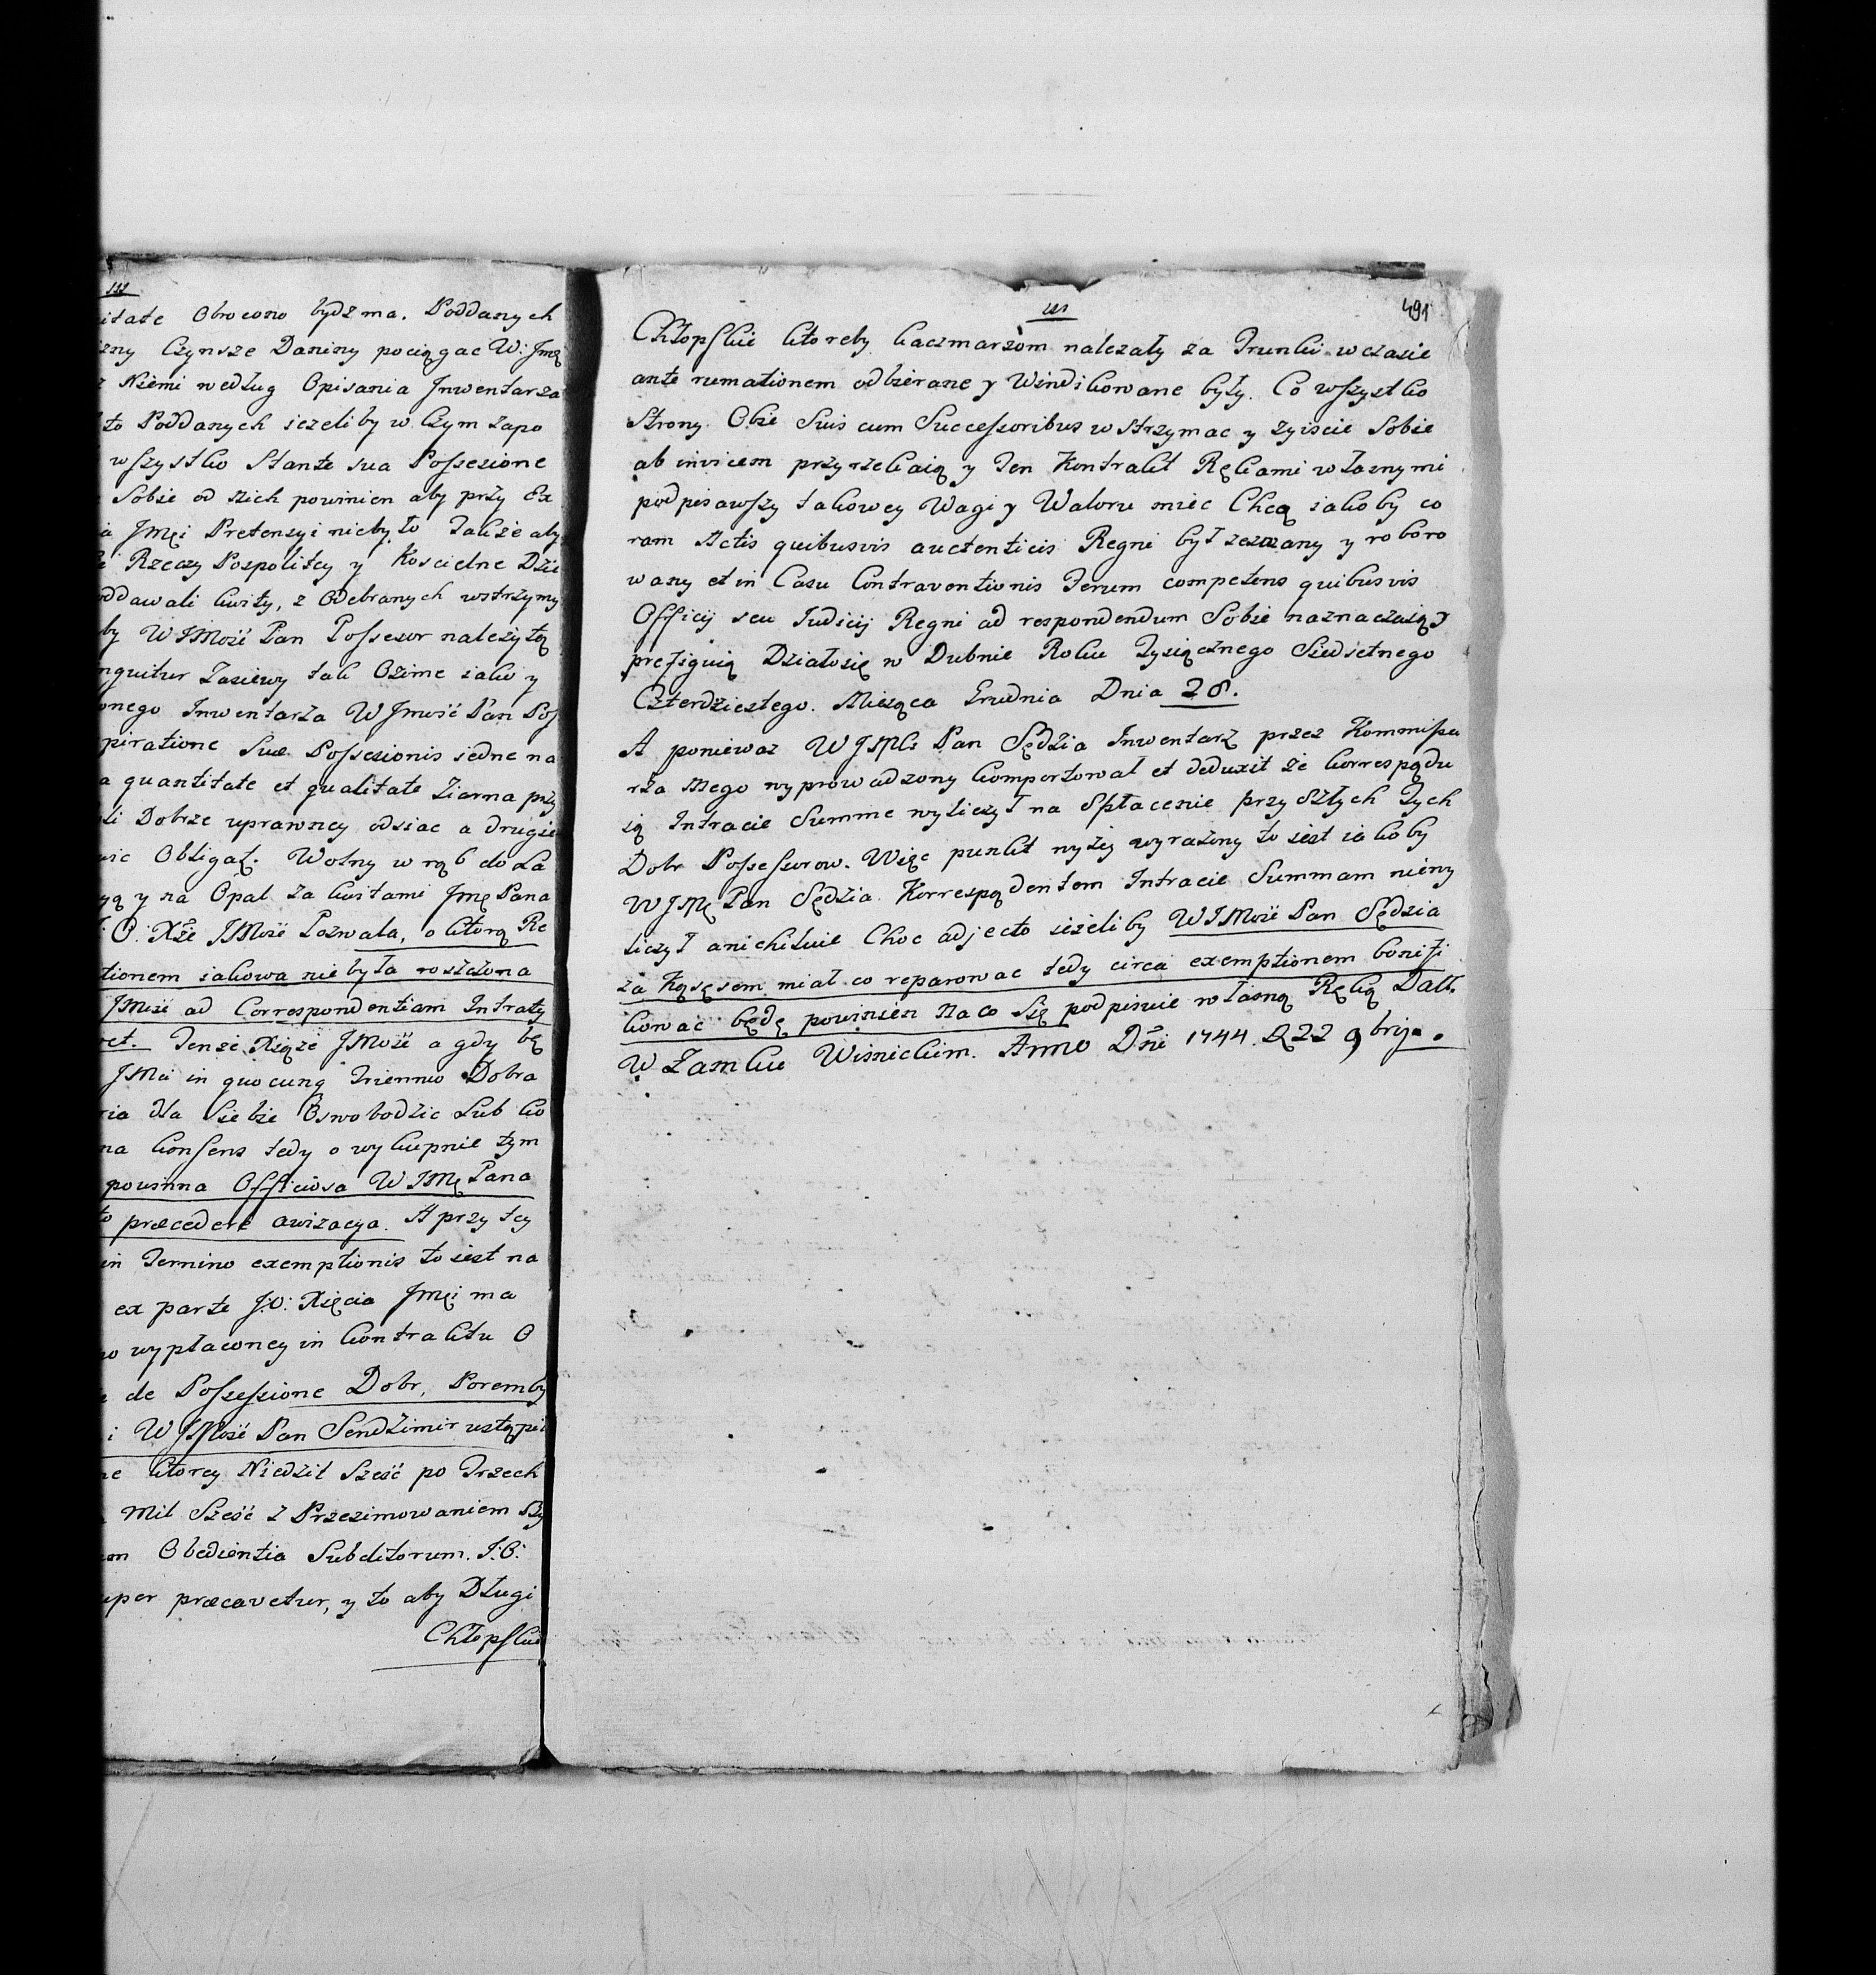 itate Obrocono bydz ma. Poddanych
zny Czynsze Daniny pociągac W: Jmę
z Niemi według Opisania Jnwentarza
to Poddanych iezeliby w Czym zapo
wszystko Stante sua Possesione
Sobie od nich powinien aby przy Ex
a Jmęi Pretensyi nieby to Także aby
Rzeczy Pospolitey y Koscielne Dzie
oddawali kwity, z Odebranych wstrzymy
by WJMość Pan Possesor nalezytą
nguitur Zasiewy tak Ozime iako y
onego Inwentarza WJmość Pan Pos
piratione Suæ Possesionis iedne na
a quantitate et qualitate Ziarna przy
li Dobrze uprawney odsiac a drugie
wic Obligat. Wolny w rąb do La
yą y na Opał za kwitami Jmę Pana
O: Xże JMość Pozwala, o ktorą Re
tionem iakowa nie była rosczona
JMość ad Correspondentiam Intraty
ret. Tenze Xiąże JMość a gdy bę
JMci in quocunq Triennio Dobra
ria dla Siebie Oswobodzic Lub ko
na konsens tedy o wykupnie tym
powinna Officiosa WJMę Pana
to præcedere awizacya. A przy tey
in Termino exemptionis to iest na
ex parte J:O: Xięcia Jmęi ma
no wypłaconey in kontraktu O
de Possessione Dobr, Poremby
i WJMość Pan Sendzimir ustąpi
ne ktorey Niedziel Sześć po Trzech
Mil Sześć z Przezimowaniem By
um Obedientia Subditorum. J:O:
uper præcavetur, y to aby Długi
Chłopskie
491
Chłopskie ktoreby kaczmarzom nalezały za Trunki w czasie
ante rumationem odbierane y Windikowane były. Co wszystko
Strony Obie Suis cum Successoribus wstrzymac y zyiscie Sobie
ab invicem przyrzekaią y Ten Kontrakt Rękami własnymi
podpisawszy takowey Wagi y Waloru miec Chcą iakoby co
ram Actis quibusvis auctenticis Regni był zeznany y roboro
wany et in Casu Contraventionis Terum competens quibusvis
Officij seu Iudicij Regni ad respondendum Sobie naznaczaią y
prefiguią Działosię w Dubnie Roku Tysiącznego Siedsetnego
Czterdziestego. Miesąca Grudnia Dnia 28.
A poniewaz WJMć Pan Sędzia Inwentarz przez Kommissa
rza mego wyprowadzony komportował et deduxit że korrespądu
ią Intracie Summe wyliczył na Spłacenie przyszłych Tych
Dobr Possessorow. Więc punkt nyżey wyrażony to iest iakoby
WJMę Pan Sędzia Korrespądentem Intracie Summam niewy
liczył anichiluie Choc adjecto ieżeliby WJMość Pan Sędzia
za Kąsęsem miał co reparowac tedy circa exemptionem bonifi
kować będę powinien na co Się podpisuie własną Ręką Datt.
W Zamku Wisnickim. Anno Dñi 1744. D 22 9brij.